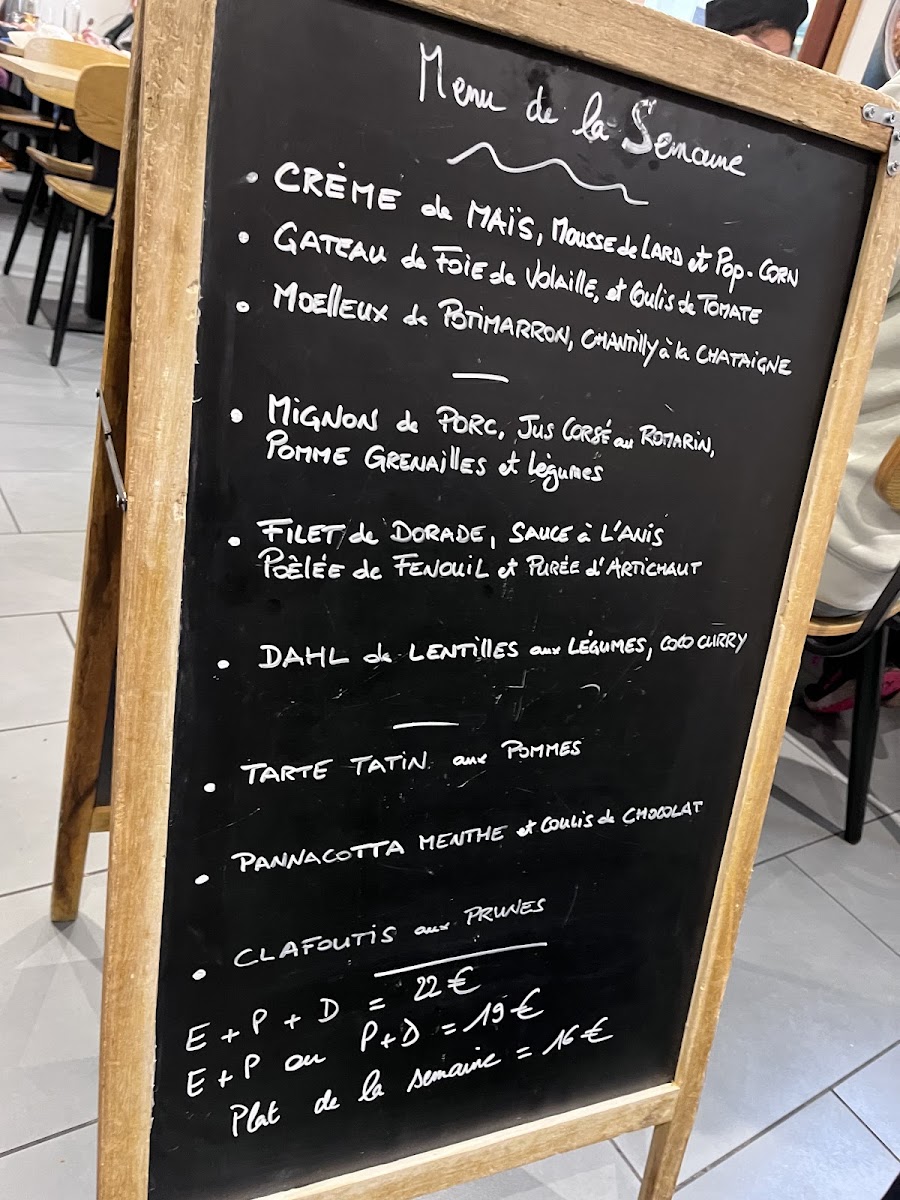 Menu de la Semaine
• CRÈME de MAÏS, MOUSSE de LARD et POP-CORN
• GATEAU de FOIE de VOLAILLE, et COULIS de TOMATE
• MOELLEUX de POTIMARRON, CHANTILLY à la CHATAIGNE
—
• MIGNON de PORC, JUS CORSÉ au ROMARIN,
POMME GRENAILLES et LÉGUMES
• FILET de DORADE, SAUCE à L'ANIS
POÊLÉE de FENOUIL et PURÉE d'ARTICHAUT
• DAHL de LENTILLES aux LÉGUMES, COCO CURRY
—
• TARTE TATIN aux POMMES
• PANNACOTTA MENTHE et COULIS de CHOCOLAT
• CLAFOUTIS aux PRUNES
E + P + D = 22 €
E + P ou P + D = 19 €
Plat de la semaine = 16 €